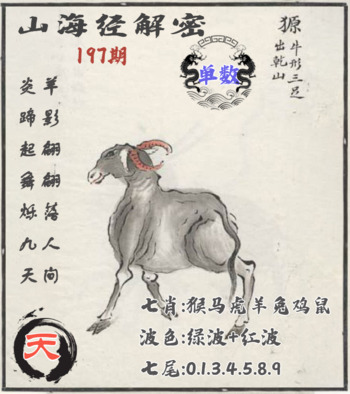 山海经解密
197期
獂牛形三足
出乾山
单数
羊影翩翩落人间
炎蹄起舞烁九天
天
七肖:猴马虎羊兔鸡鼠
波色:绿波+红波
七尾:0.1.3.4.5.8.9